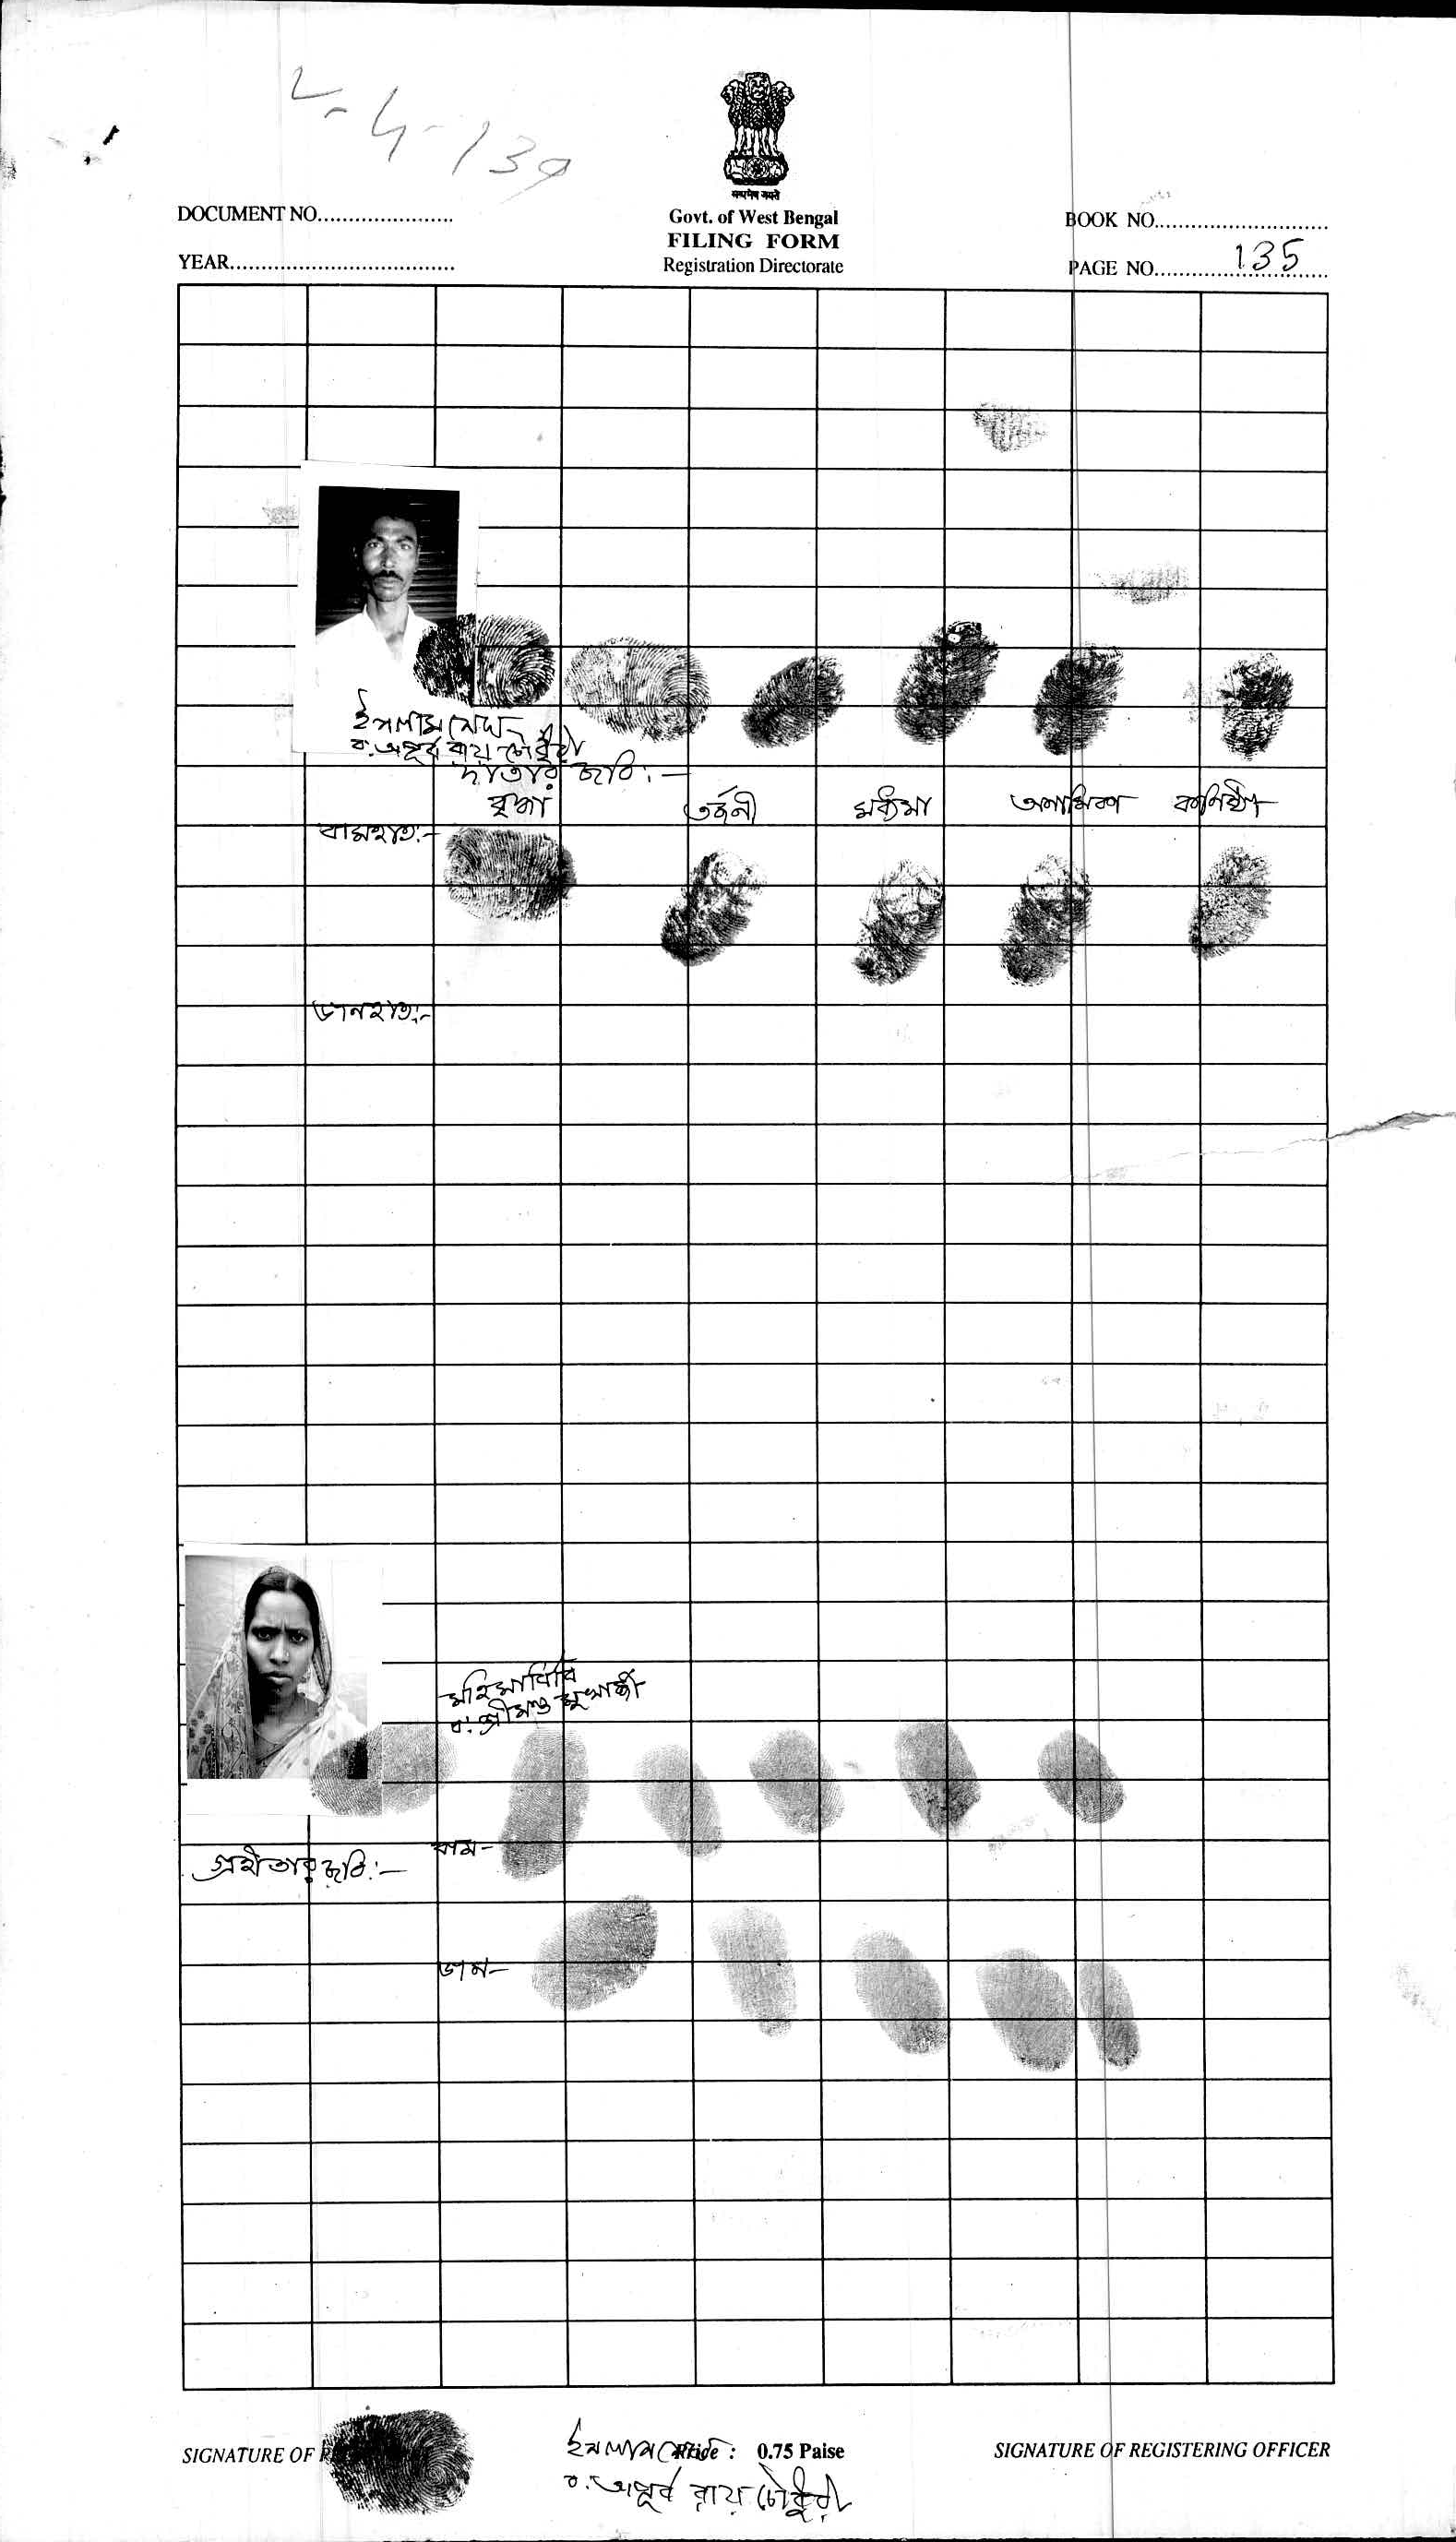 DOCUMENT NO......................
YEAR....................................
सत्यमेव जयते
Govt. of West Bengal
FILING FORM
Registration Directorate
BOOK NO............................
PAGE NO. 135
ইসলাম সেখ
ব. অপূর্ব রায় চৌধুরী
দাতার ছবি :—
বৃদ্ধা তর্জনী মধ্যমা অনামিকা কনিষ্ঠা
বামহাত:-
ডানহাত:-
মহিমা বিবি
ব: শ্রীমন্ত মুখার্জী
গ্রহীতার ছবি :—
বাম-
ডান-
SIGNATURE OF
ইসলাম সেখ
Price : 0.75 Paise
ব. অপূর্ব রায় চৌধুরী
SIGNATURE OF REGISTERING OFFICER